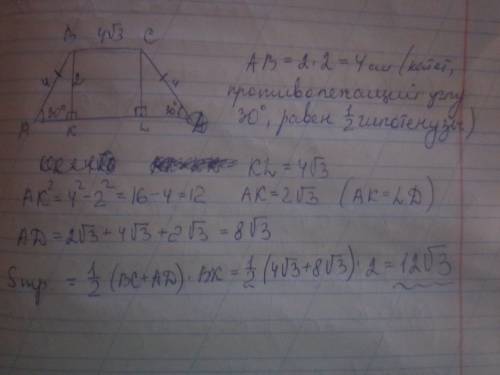 B 4√3 C
4 2 4
30° 30°
A K L D
AB = 2·2 = 4 см (катет,
противолежащий углу
30°, равен 1/2 гипотенузы)
KL = 4√3
AK² = 4² - 2² = 16 - 4 = 12 AK = 2√3 (AK = LD)
AD = 2√3 + 4√3 + 2√3 = 8√3
Sтр = 1/2 (BC + AD) · BK = 1/2 (4√3 + 8√3) · 2 = 12√3